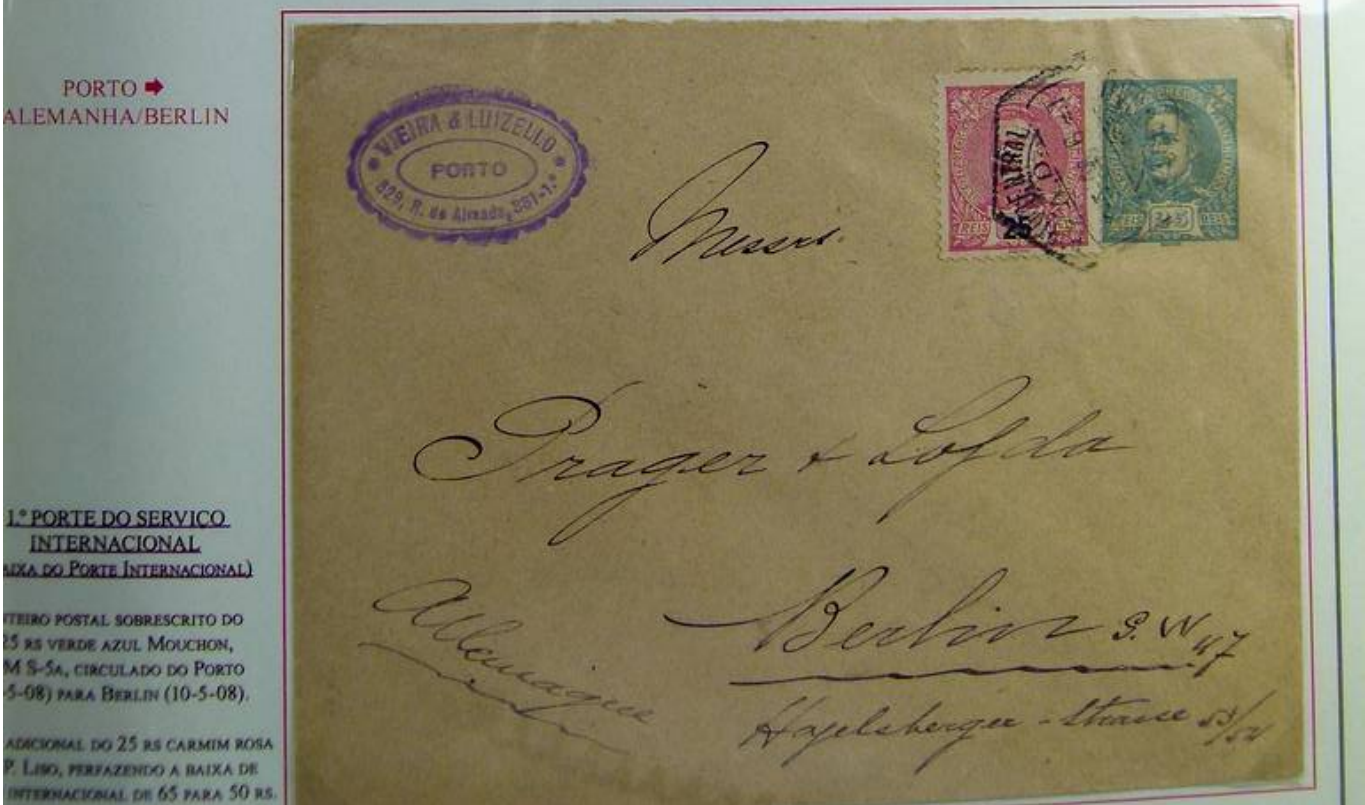 PORTO ➡
ALEMANHA/BERLIN
1.º PORTE DO SERVIÇO
INTERNACIONAL
AIXA DO PORTE INTERNACIONAL)
TEIRO POSTAL SOBRESCRITO DO
25 RS VERDE AZUL MOUCHON,
M S-5A, CIRCULADO DO PORTO
-5-08) PARA BERLIN (10-5-08).
ADICIONAL DO 25 RS CARMIM ROSA
P. LISO, PERFAZENDO A BAIXA DE
INTERNACIONAL DE 65 PARA 50 RS.
VIEIRA & LUIZELLO
PORTO
529, R. do Almada, 531-1.º
CENTRAL
REIS 25
REIS 25 REIS
Messrs.
Prager & Lojda
Berlin S. W 47
Hagelsberger-Strasse 53/54
Allemagne